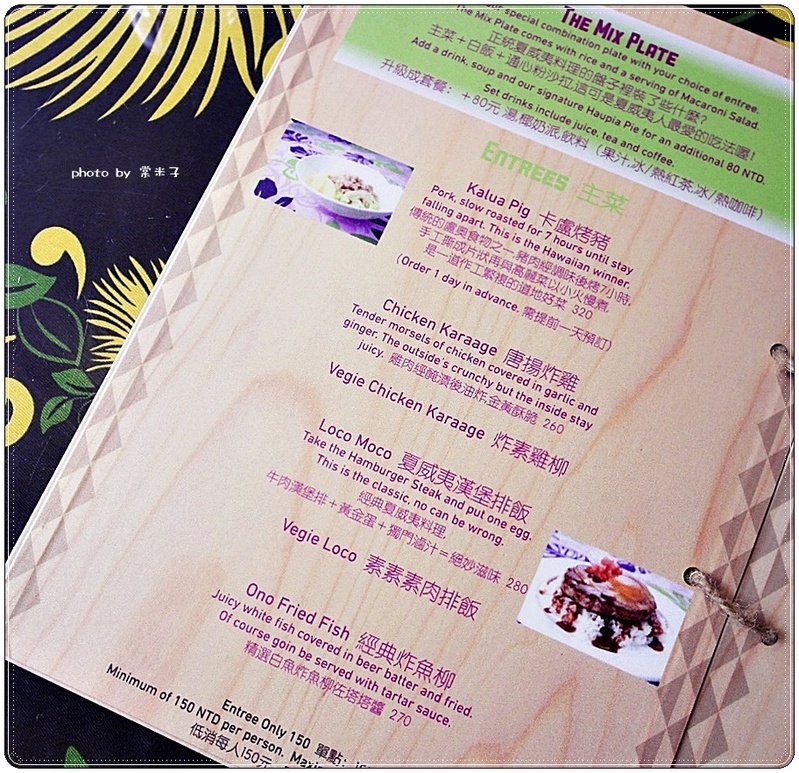 THE MIX PLATE
special combination plate with your choice of entree.
The Mix Plate comes with rice and a serving of Macaroni Salad.
正統夏威夷料理的盤子裡裝了些什麼?
主菜+白飯+通心粉沙拉,這可是夏威夷人最愛的吃法喔!
Add a drink, soup and our signature Haupia Pie for an additional 80 NTD.
升級成套餐: +80元 湯,椰奶派,飲料 (果汁,冰/熱紅茶,冰/熱咖啡)
Set drinks include juice, tea and coffee.
ENTREES 主菜
photo by 棠米子
Kalua Pig 卡盧烤豬
Pork, slow roasted for 7 hours until stay
falling apart. This is the Hawaiian winner.
傳統的盧奧食物之一,豬肉經調味後烤7小時,
手工撕成片狀再與高麗菜以小火慢煮,
是一道作工繁複的道地好菜 320
(Order 1 day in advance. 需提前一天預訂)
Chicken Karaage 唐揚炸雞
Tender morsels of chicken covered in garlic and
ginger. The outside's crunchy but the inside stay
juicy. 雞肉經醃漬後油炸,金黃酥脆 260
Vegie Chicken Karaage 炸素雞柳
Loco Moco 夏威夷漢堡排飯
Take the Hamburger Steak and put one egg.
This is the classic, no can be wrong.
經典夏威夷料理,
牛肉漢堡排+黃金蛋+獨門滷汁=絕妙滋味 280
Vegie Loco 素素素肉排飯
Ono Fried Fish 經典炸魚柳
Juicy white fish covered in beer batter and fried.
Of course goin be served with tartar sauce.
精選白魚炸魚柳佐塔塔醬 270
Entree Only 150 單點:
Minimum of 150 NTD per person.
低消每人150元